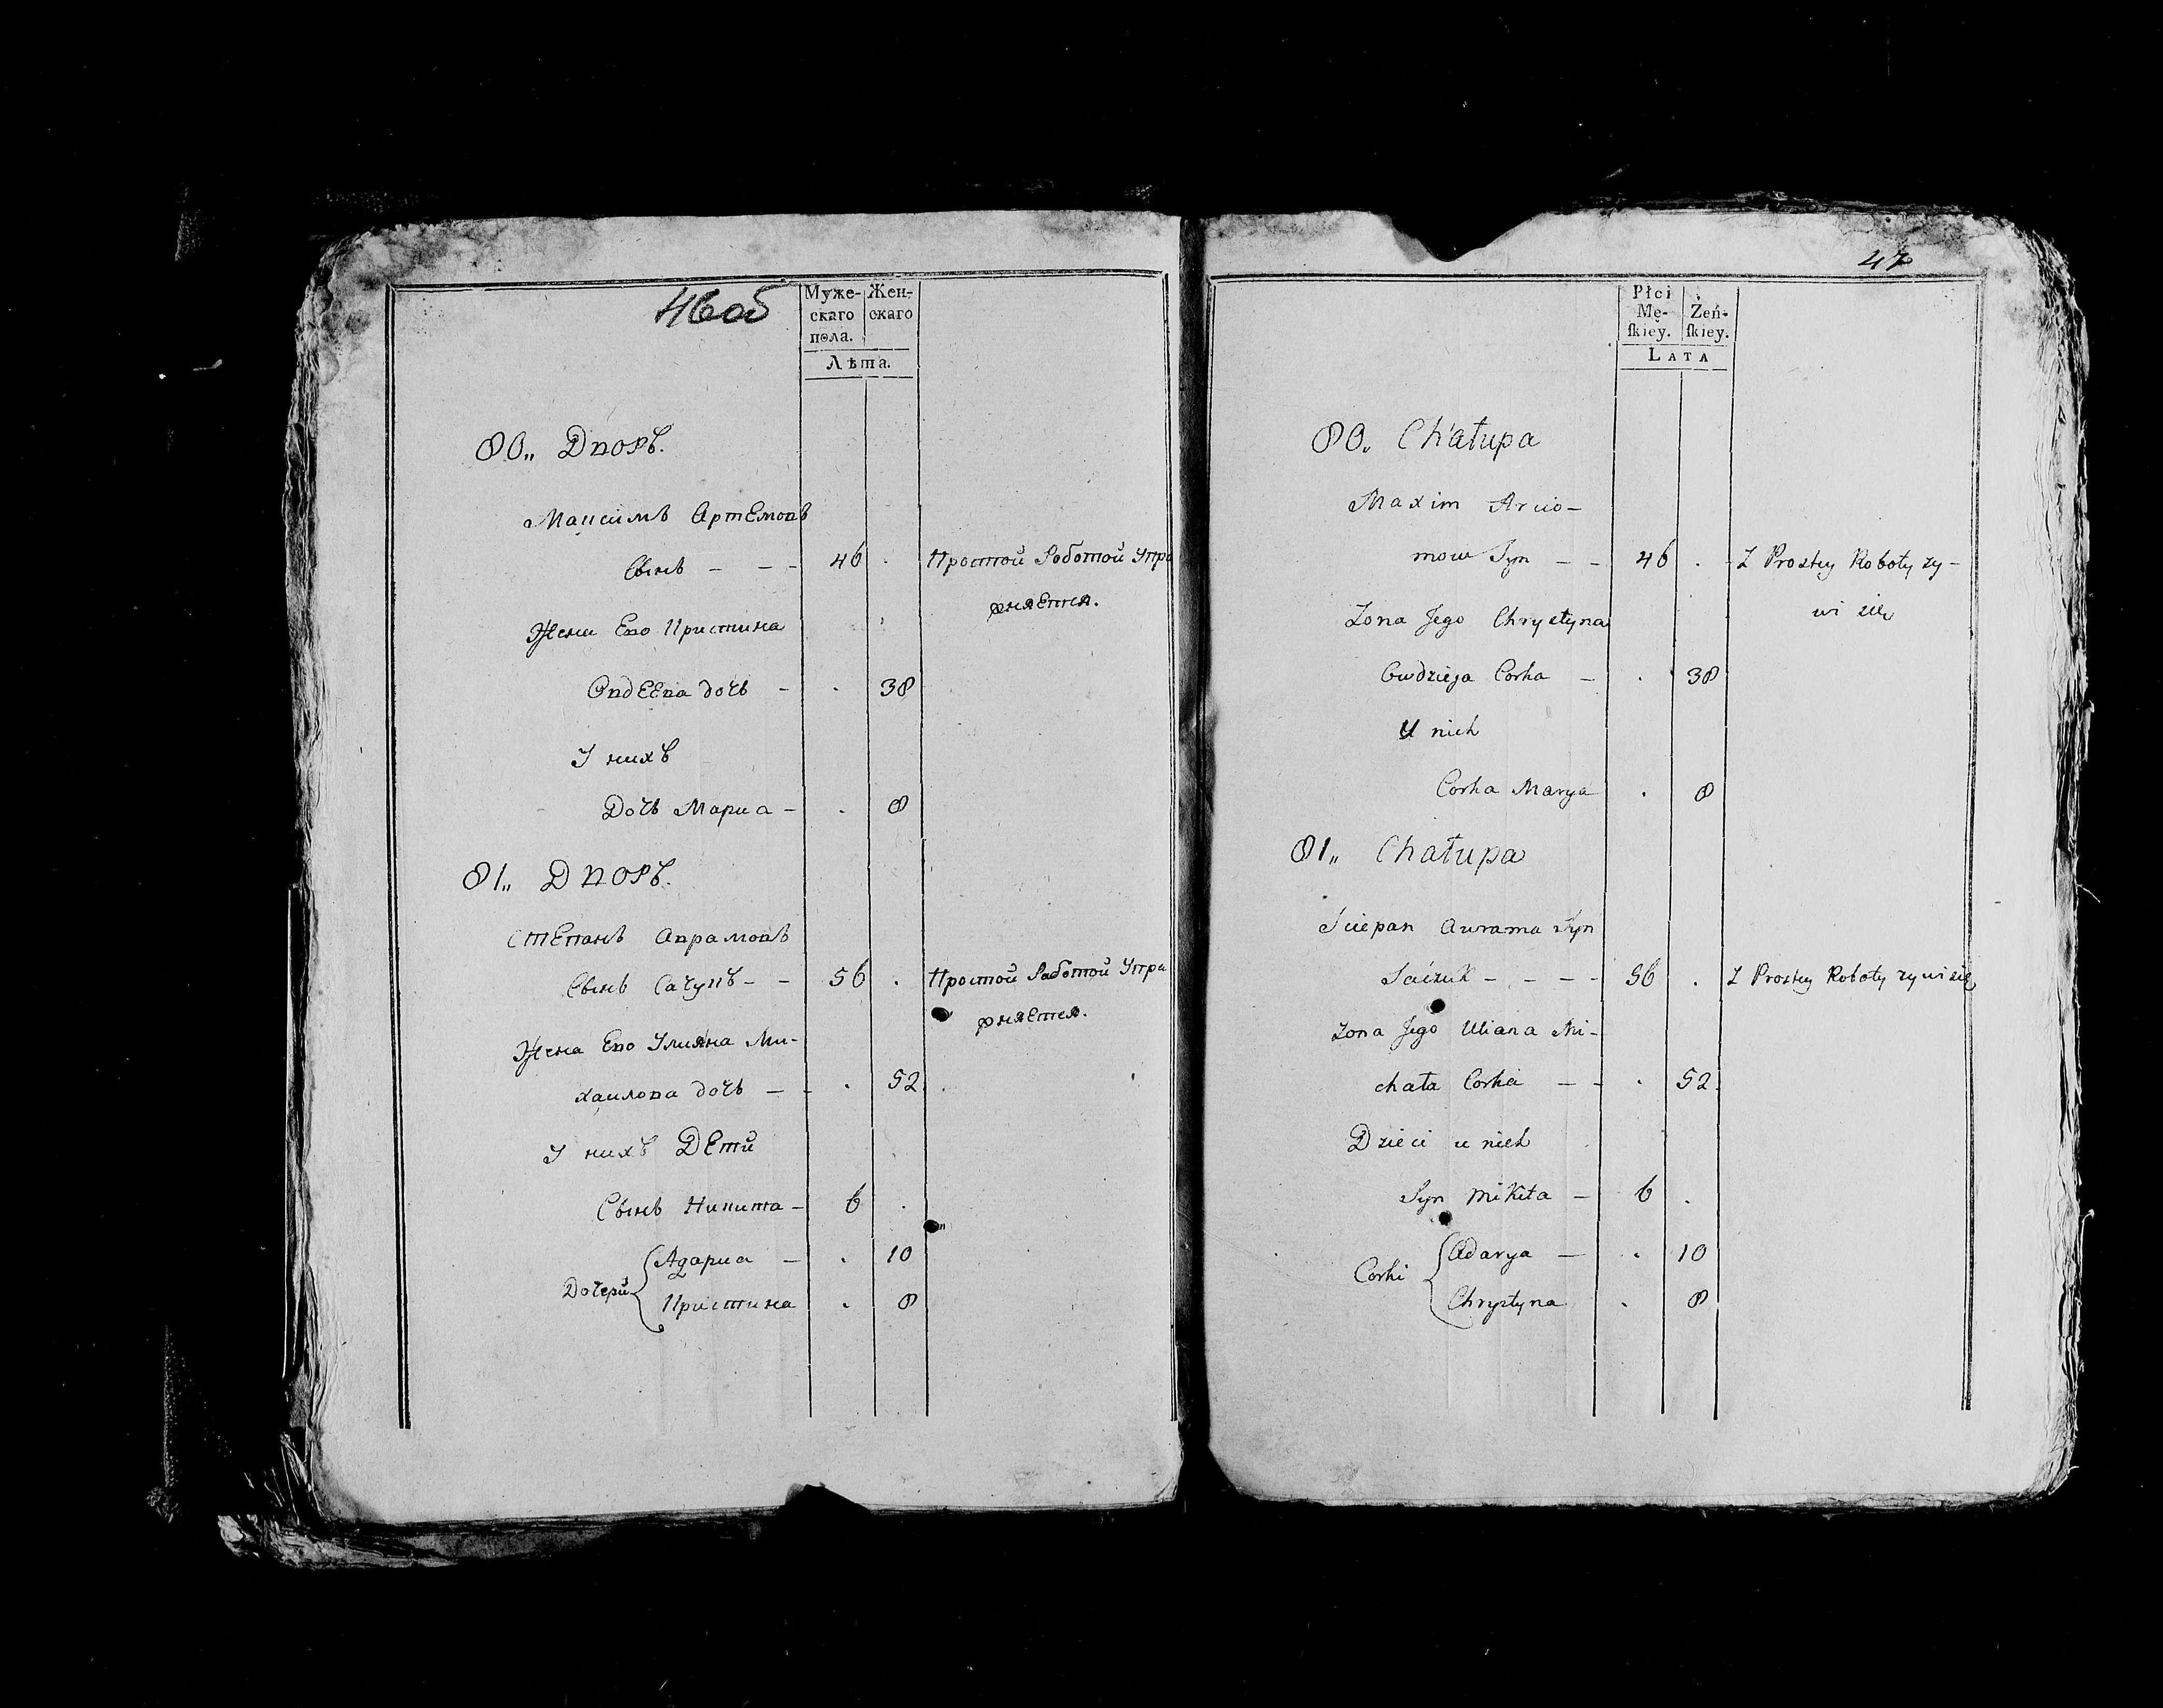 46об
Муже-
скаго
пола.
Жен-
скаго
Лѣта.
80„ Дворъ.
Максимъ Артемовъ
Сынъ - - - 46 . Простой Работой Упра
жняется.
Жена Ево Кристина
Овдеева дочь - . 38
У нихъ
Дочь Мариа - . 8
81„ Дворъ.
Степанъ Аврамовъ
Сынъ Сачукъ - - 56 . Простой Работой Упра
жняется.
Жена Ево Улияна Ми-
хаилова дочь - - . 52
У нихъ Дети
Сынъ Никита - 6 .
Дочери { Адариа - . 10
Кристина . 8
47
Płci
Mę-
ſkiey.
Żeń-
ſkiey.
LATA
80„ Chałupa
Maxim Arcio-
mow Syn - - 46 . Z Prostey Roboty zy-
wi się
Zona Jego Chrystyna
Owdzieja Corka - . 38
U nich
Corka Marya . 8
81„ Chałupa
Sciepan Awrama Syn
Saczuk - - - - 56 . Z Prostey Roboty zywi się
Zona Jego Uliana Mi-
chała Corka - - . 52
Dzieci u nich
Syn Mikita - 6 .
Corki { Adarya - . 10
Chrystyna . 8